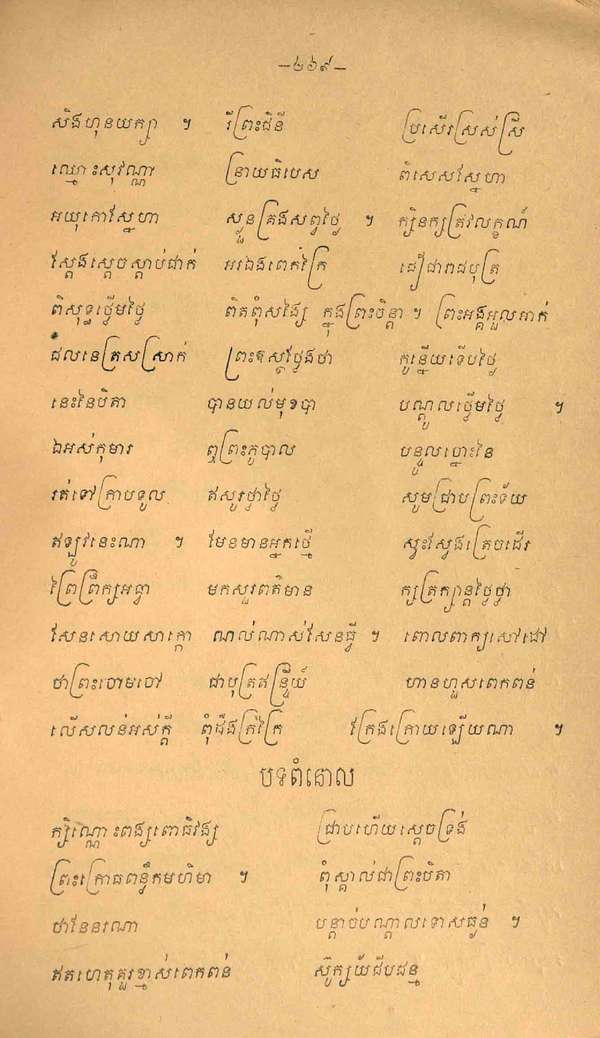 –៤៦៩–
សិងហុនយក្សា ។ រីព្រះជិនីី ប្រសើរស្រស់ស្រី
ឈ្មោះសុវណ្ណា ន្រាយធិបេស ពិសេសស្នែហា
អយុកោស្នែហា ស្ងួនគ្រងសព្វថ្ងៃ ។ ក្សិនក្សត្រវលក្ខណ៍
ស្តែងស្តេចស្តាប់ជាក់ អរឯងពេកក្រៃ ជឿជារាជបុត្រ
ពិសុទ្ធថ្លើមថ្លៃ ពិតពុំសង្ស័យ ក្នុងព្រះចិន្តា ។ ព្រះអង្គអួលអាក់
ជលនេត្រសស្រាក់ ព្រះឱស្ឋថ្លែងថា កូន្លើយទើបថ្លៃ
នេះនៃបិតា បានយល់មុខបា បណ្តូលថ្លើមថ្លៃ ។
ឯអស់កុមារ ឮព្រះភូបាល បន្ទូលឆ្ពោះនៃ
រត់ទៅក្រាបទូល ឥសូរថ្លាថ្លៃ សូមជ្រាបព្រះទ័យ
ឥឡូវនេះណា ។ មែនមានអ្នកថ្មើ ស្វះស្វែងត្រេចដើរ
ព្រៃព្រឹក្សអធ្វា មកសួរពត៌មាន ក្សត្រក្សាន្តថ្លៃថ្លា
សែនសោយសោក្កោ ណល់ណាស់សែនធ្វី ។ ពោលពាក្យសៅដៅ
ថាព្រះចោមចៅ ជាបុត្រឥន្ទ្រីយ៍ ហានហួសពេកពន់
លើសលន់អស់ក្តី ពុំដឹងក្រក្រៃ ក្រែងក្រោយឡើយណា ។
បទពំនោល
ក្សិណ្ណោះពង្សពោធិវង្ស ជ្រាបហើយស្តេចទ្រង់
ព្រះក្រោធពន្លឹកមហិមា ។ ពុំស្គាល់ជាព្រះបិតា
ថានែនរណា បន្តាច់បណ្តាលទោសធ្ងន់ ។
ឥតហេតុគួរខ្មាស់ពេកពន់ ស៊ូក្ស័យជីបជន្ម